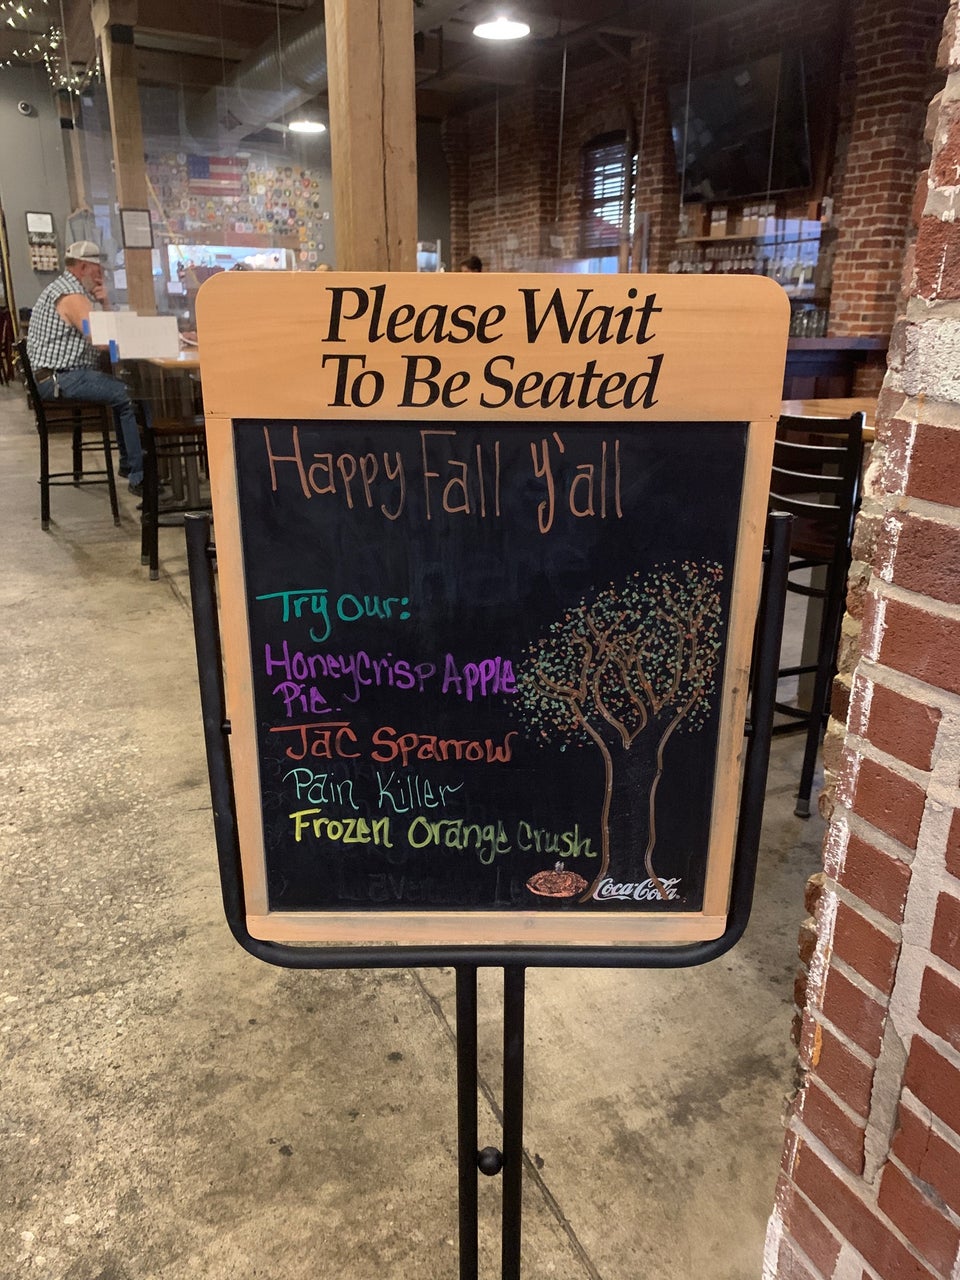 Please Wait
To Be Seated
Happy Fall Y'all
Try our:
Honeycrisp Apple
Pie.
Jac Sparrow
Pain Killer
Frozen Orange Crush
Coca-Cola